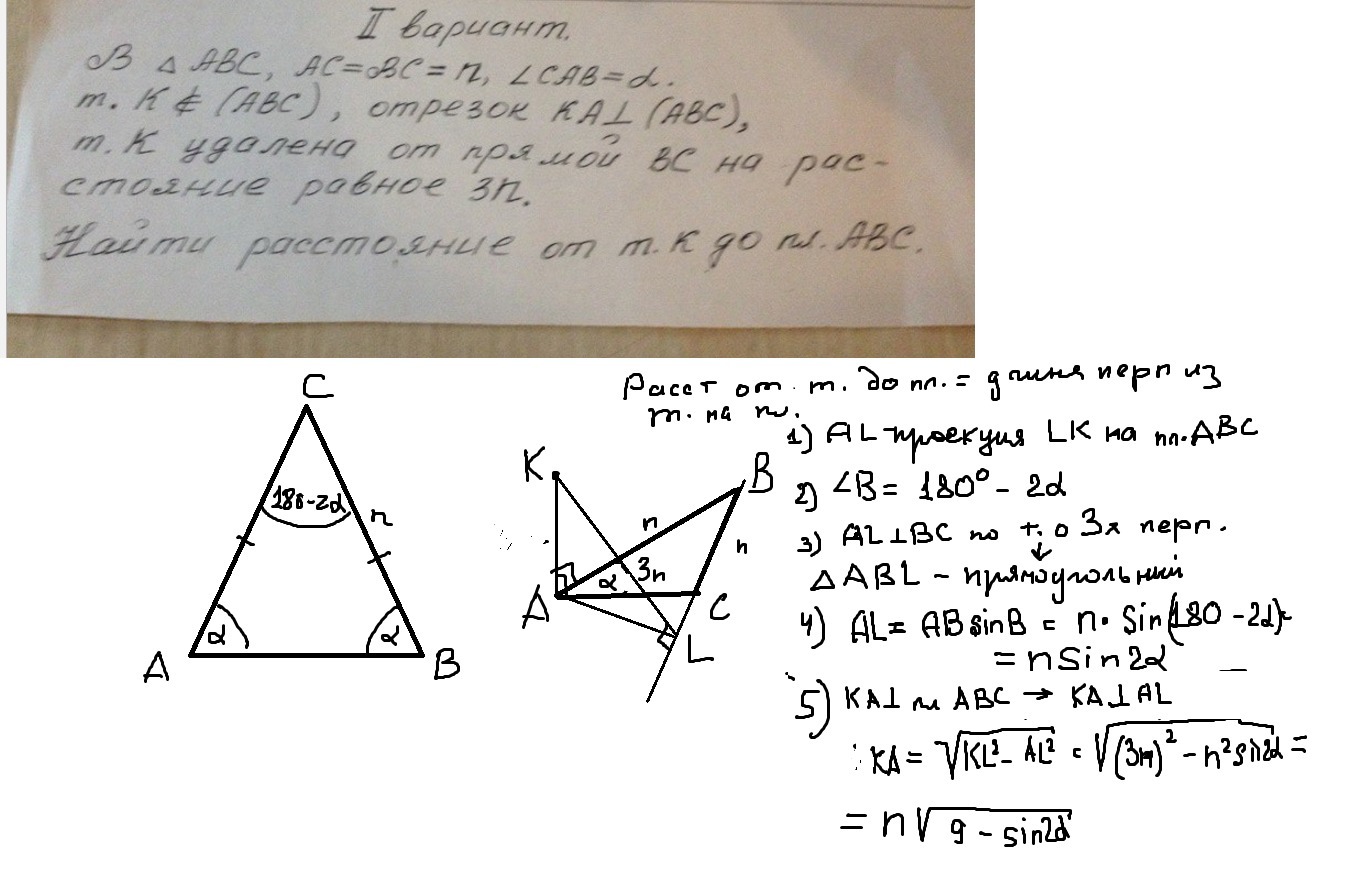 II вариант.
В △ ABC, AC=BC=n, ∠CAB=α.
т. K ∉ (ABC), отрезок KA⊥(ABC),
т. K удалена от прямой BC на рас-
стояние равное 3n.
Найти расстояние от т. K до пл. ABC.
C
180-2α
n
α
α
A
B
K
B
n
n
3n
α
A
C
L
Расст от т. до пл. = длина перп из
т. на пл.
1) AL-проекция LK на пл.ABC
2) ∠B = 180° - 2α
3) AL⊥BC по т. о 3х перп.
↓
△ABL - прямоугольный
4) AL= AB sinB = n· sin(180-2α)=
= n sin2α
5) KA⊥ пл ABC → KA⊥AL
KA= √KL²- AL² = √(3n)² - n² sin2α =
= n√9 - sin2α